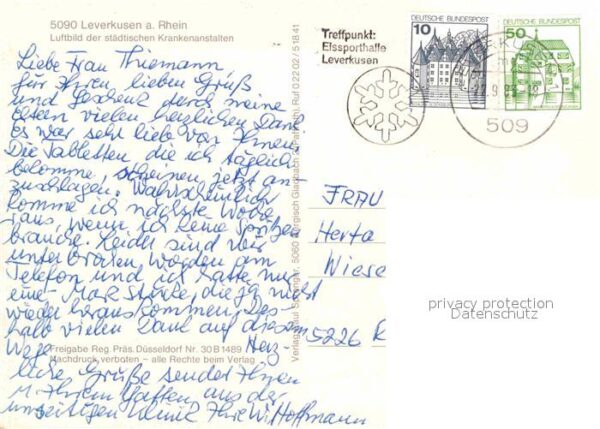 5090 Leverkusen a. Rhein
Luftbild der städtischen Krankenanstalten
Liebe Frau Thiemann
für Ihren lieben Gruß
und Geschenk durch meine
Eltern vielen herzlichen Dank
es war sehr lieb von Ihnen.
Die Tabletten, die ich täglich
bekomme, scheinen jetzt an-
zuschlagen. Wahrscheinlich
komme ich nächste Woche
raus, wenn ich keine Spritzen
brauche. Leider sind wir
unterbrochen worden am
Telefon und ich hatte nur
eine Mark Stücke, die ja nicht
wieder heraus kommen. Des-
halb vielen Dank auf diesem
Wege Herz-
liche Grüße sendet Ihnen
u. Ihrem Gatten aus der
Klinik Ihre W. Hoffmann
Freigabe Reg. Präs. Düsseldorf Nr. 30 B 1489
Nachdruck verboten – alle Rechte beim Verlag
5060 Bergisch Gladbach 2 Ruf 0 22 02 / 5 18 41
Treffpunkt:
Eissporthalle
Leverkusen
10
DEUTSCHE BUNDESPOST
50
DEUTSCHE BUNDESPOST
509
FRAU
Herta
Wiese
5226 R
privacy protection
Datenschutz